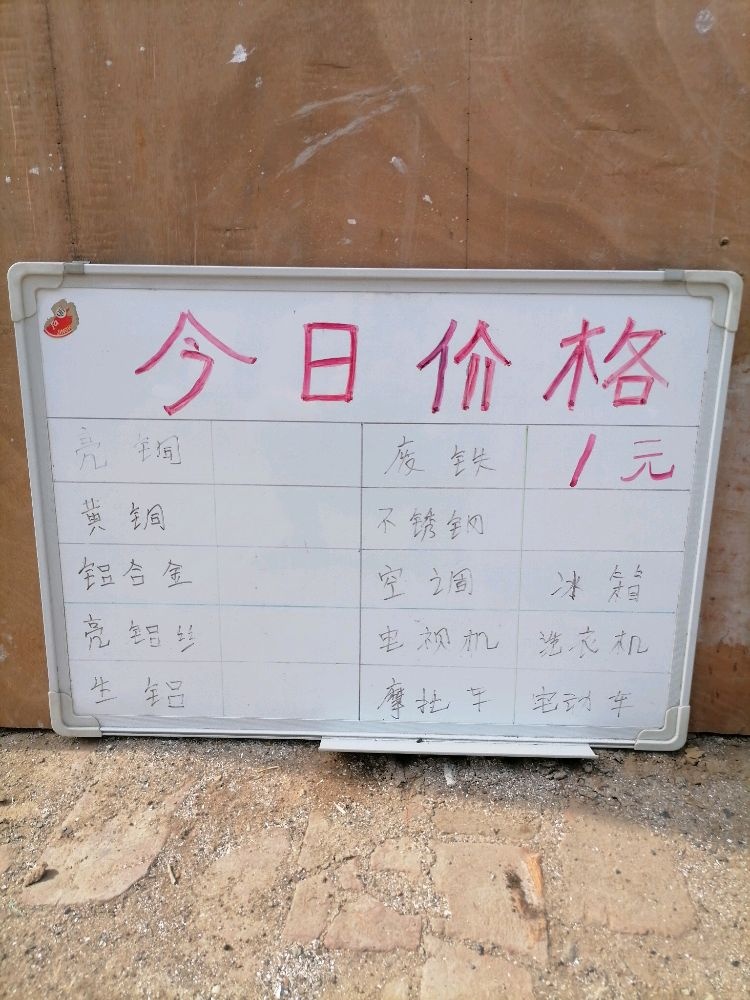 今日价格
亮铜 废铁 1元
黄铜 不锈钢
铝合金 空调 冰箱
亮铝丝 电视机 洗衣机
生铝 摩托车 电动车